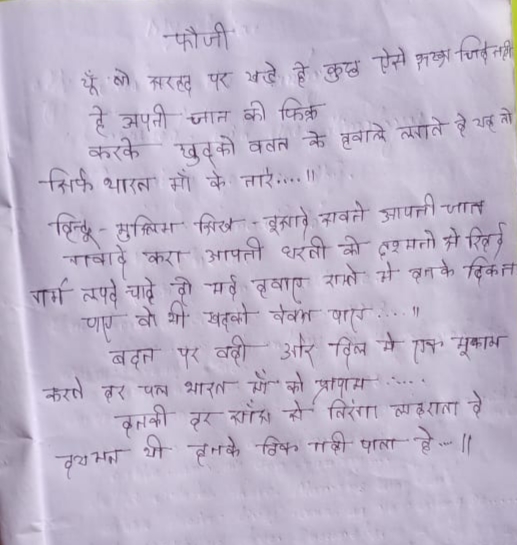 फौजी
यूँ तो सरहद पर खड़े है कुछ ऐसे शख्स जिन्हे नही
है अपनी जान की फिक्र
करके खुदको वतन के हवाले लगाते है यह तो
सिर्फ भारत माँ के नारे....॥
हिन्दू - मुस्लिम सिख - इसाई सबने आपनी जान
गवाई करा आपनी धरती को दुश्मनो से
गर्म लपटे चाहे हो सर्द हवाए रास्ते मे इनके दिक्कत
पाए वो भी खुदको बेबस पाए....॥
बदन पर वर्दी और दिल मे एक मुकाम
करते हर पल भारत माँ को प्राणाम .....
इनकी हर साँस से तिरंगा लहराता है
दुश्मन भी इनके टिक नही पाता है...॥